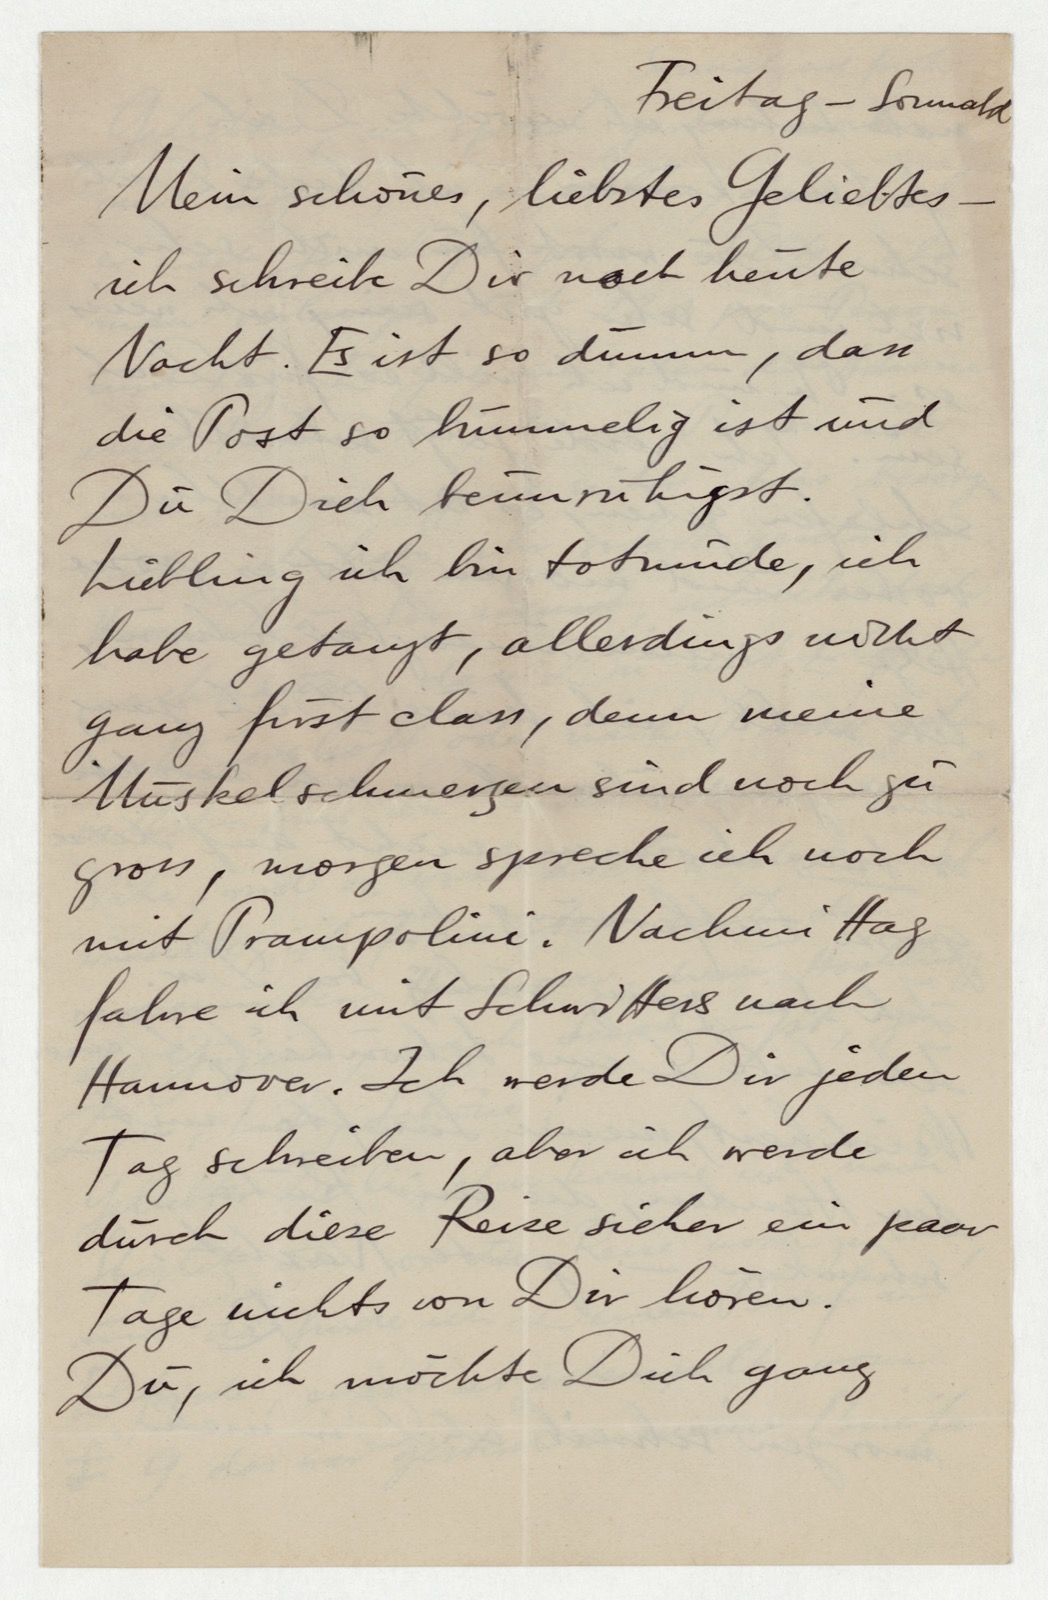 Freitag – Sonnabd
Mein schönes, liebstes Geliebtes –
ich schreibe Dir noch heute
Nacht. Es ist so dumm, dass
die Post so bummelig ist und
Du Dich beunruhigst.
Liebling ich bin totmüde, ich
habe getanzt, allerdings nicht
ganz first class, denn meine
Muskelschmerzen sind noch zu
gross, morgen spreche ich noch
mit Prampolini. Nachmittag
fahre ich mit Schwitters nach
Hannover. Ich werde Dir jeden
Tag schreiben, aber ich werde
durch diese Reise sicher ein paar
Tage nichts von Dir hören.
Du, ich möchte Dich ganz